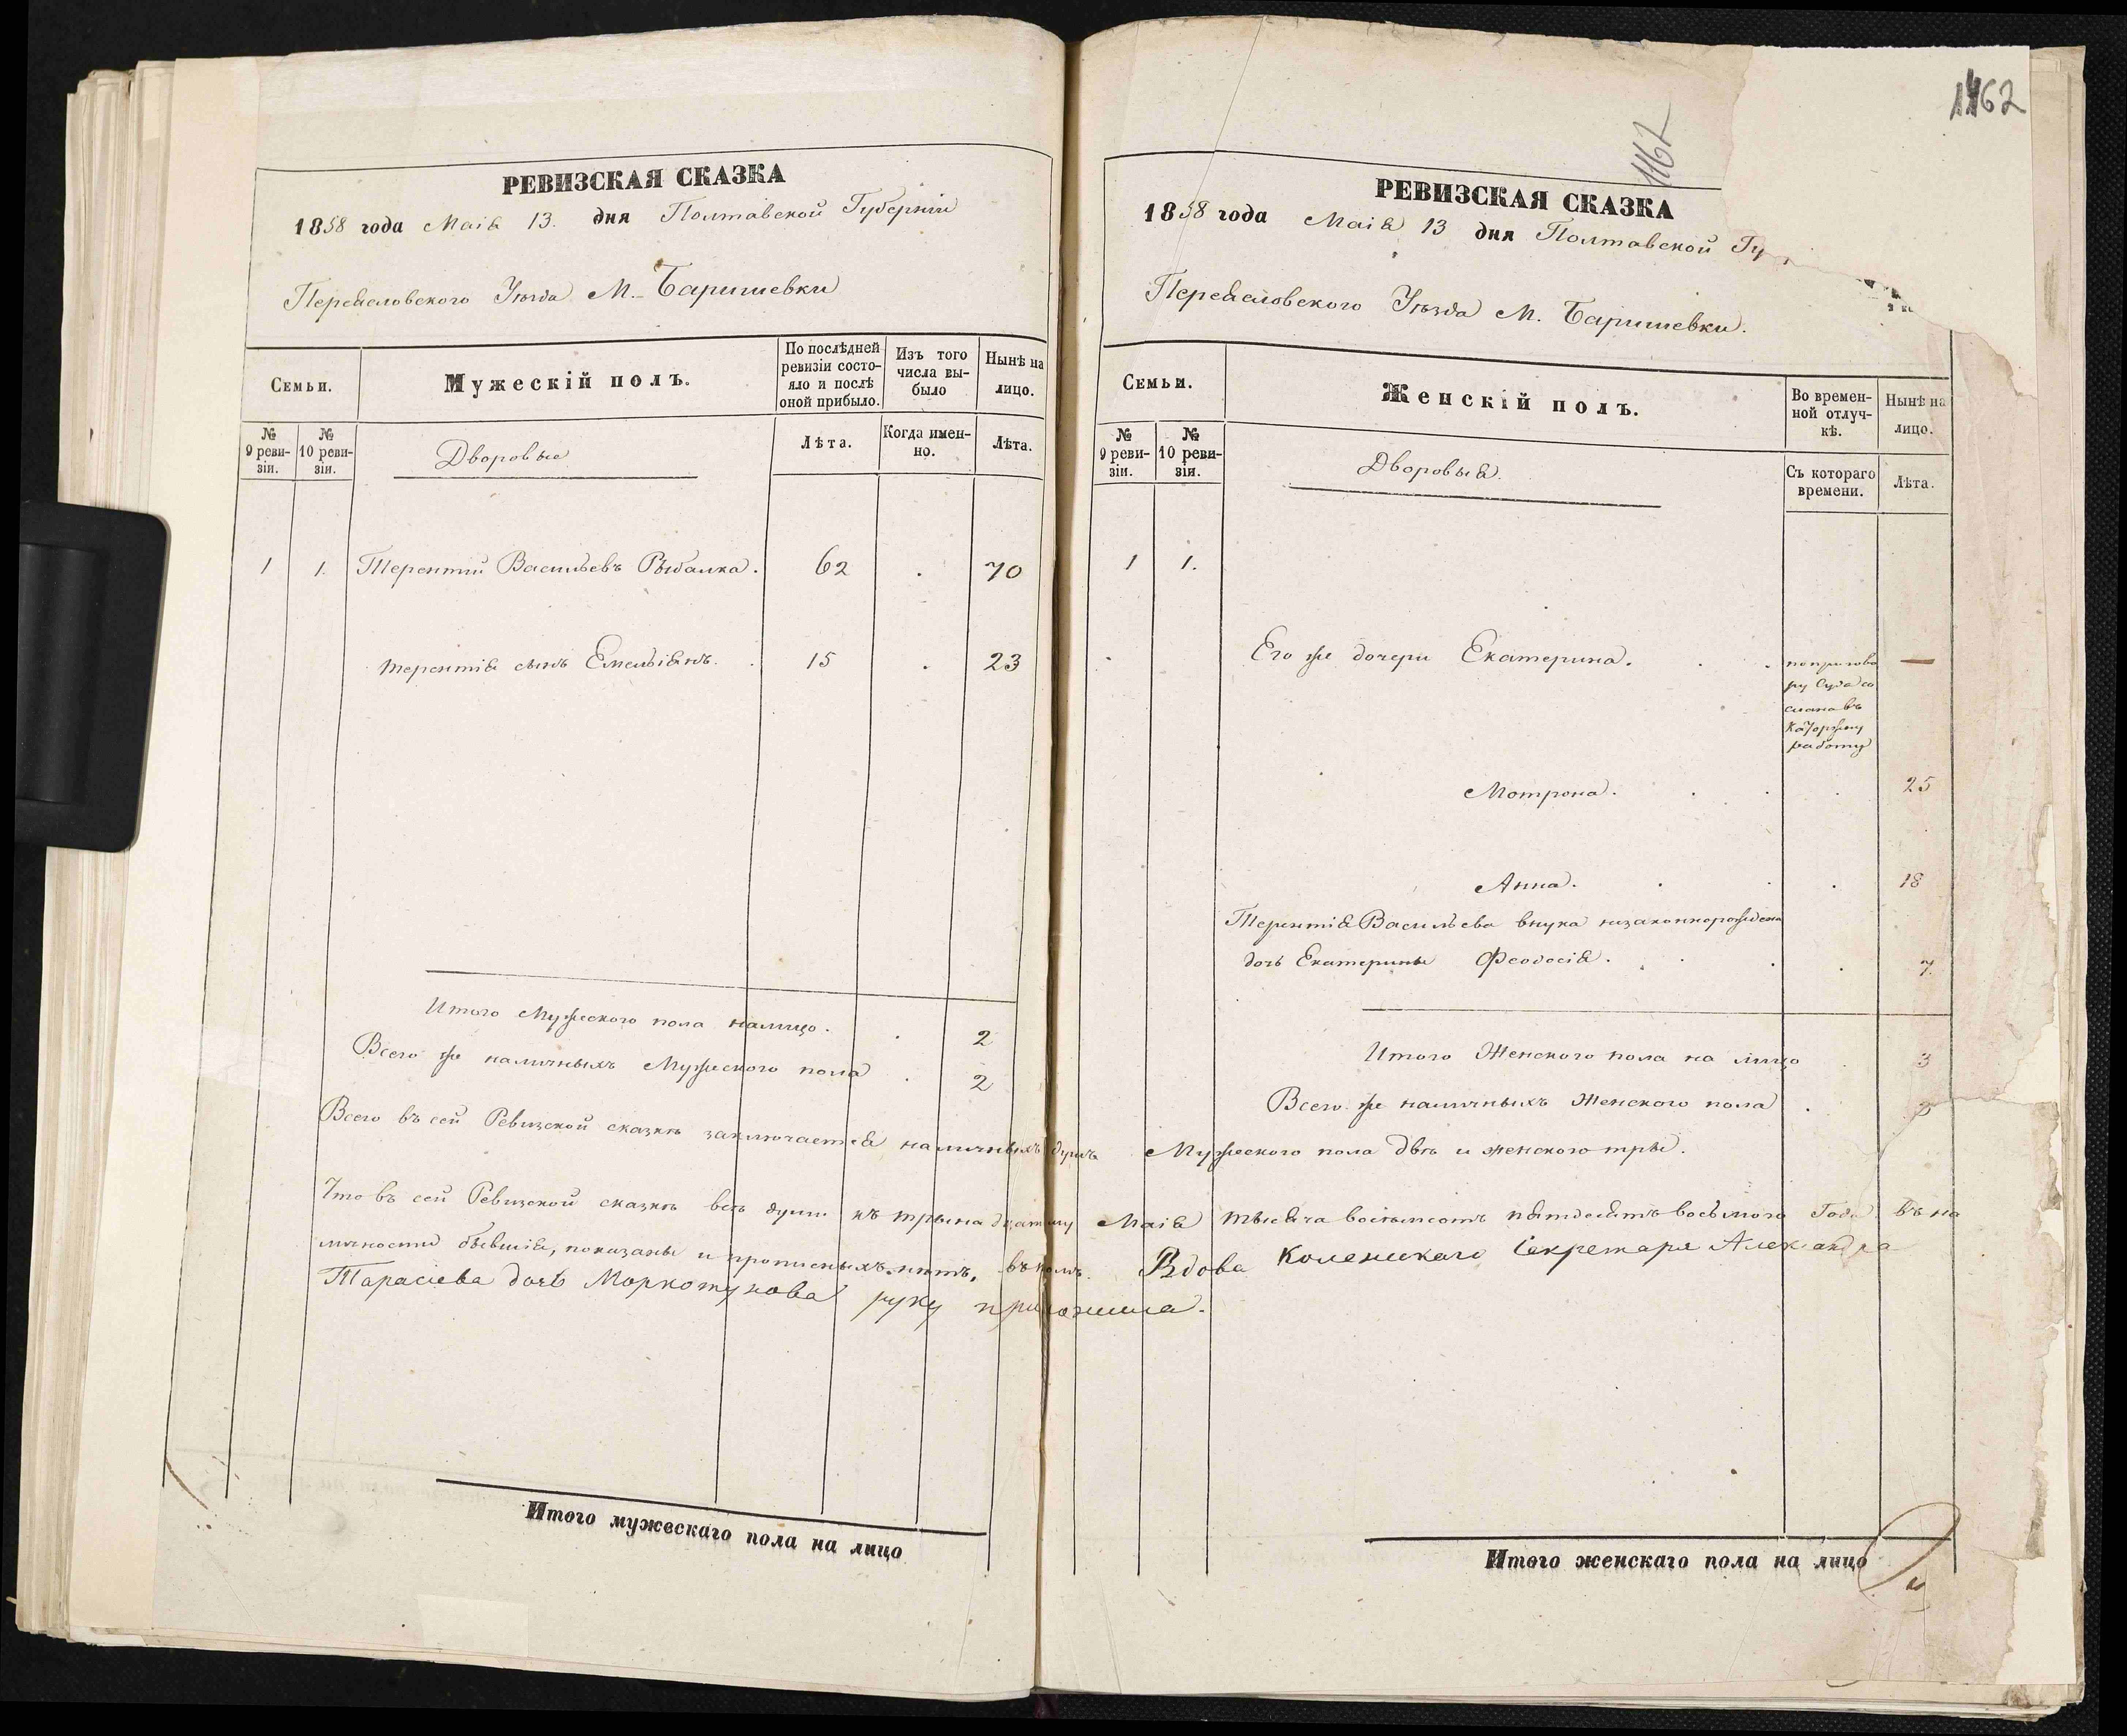 РЕВИЗСКАЯ СКАЗКА
1858 года Маія 13. дня Полтавской Губерніи
Переясловского Уѣзда М. Баришевки
Семьи.
Мужескій полъ.
По послѣдней ревизіи состо-
яло и послѣ
оной прибыло.
Изъ того
числа вы-
было
Нынѣ на
лицо.
№
9 реви-
зіи.
№
10 реви-
зіи.
Дворовые
Лѣта.
Когда имен-
но.
Лѣта.
1 1. Терентій Васильевъ Рыбалка. 62 . 70
терентія сынъ Емельянъ. 15 . 23
Итого Мужеского пола налицо. 2
Всего же наличныхъ Мужеского пола 2
1462
1162
РЕВИЗСКАЯ СКАЗКА
1858 года Маія 13 дня Полтавской Гу
Переясловского Уѣзда М. Баришевки.
Семьи.
Женскій полъ.
Во времен-
ной отлуч-
кѣ.
Нынѣ на
лицо.
№
9 реви-
зіи.
№
10 реви-
зія.
Дворовыя.
Съ котораго
времени.
Лѣта.
1 1.
Его же дочери Екатерина. —
по пригово
ру Суда со
слана въ
каторжну
работу
Мотрона. 25
Анна. 18
Терентія Васильева внука низаконнорожденa
дочь Екатерины Феодосія. 7.
Итого Женского пола на лицо 3
Всего же наличныхъ Женского пола . 3
Всего въ сей Ревизской сказкѣ заключается наличныхъ душъ Мужеского пола двѣ и женского три.
Что въ сей Ревизской сказкѣ всѣ души къ тринадцатому Маія тысяча восемьсотъ пятдесятъ восьмого Года въ на
личности бывшія, показаны и прописныхъ нѣтъ, въ томъ. Вдова Колежскаго Секретаря Александра
Тарасіева дочь Моркотунова руку приложила.
Итого мужескаго пола на лицо
Итого женскаго пола на лицо